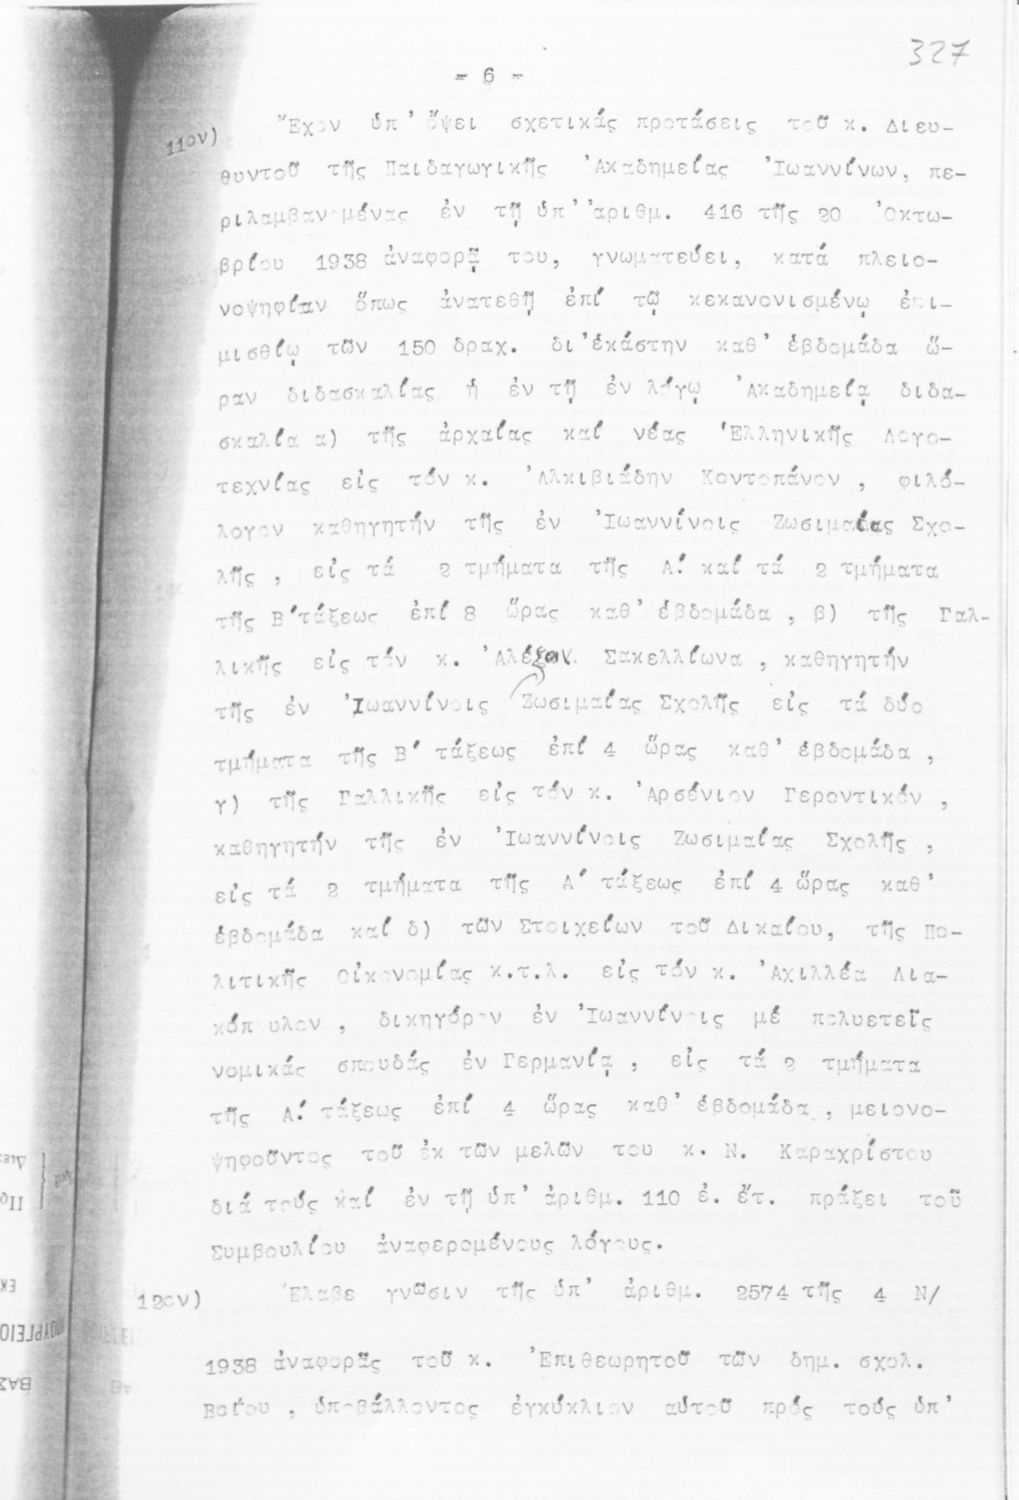 327
- 6 -
11ον) Ἔχον ὑπ' ὄψει σχετικάς προτάσεις τοῦ κ. Διευ-
θυντοῦ τῆς Παιδαγωγικῆς Ἀκαδημείας Ἰωαννίνων, πε-
ριλαμβανομένας ἐν τῇ ὑπ' ἀριθμ. 416 τῆς 20 Ὀκτω-
βρίου 1938 ἀναφορᾷ του, γνωματεύει, κατά πλειο-
νοψηφίαν ὅπως ἀνατεθῇ ἐπί τῷ κεκανονισμένῳ ἐπι-
μισθίῳ τῶν 150 δραχ. δι' ἑκάστην καθ' ἑβδομάδα ὥ-
ραν διδασκαλίας ἡ ἐν τῇ ἐν λόγῳ Ἀκαδημείᾳ διδα-
σκαλία α) τῆς ἀρχαίας καί νέας Ἑλληνικῆς Λογο-
τεχνίας εἰς τόν κ. Ἀλκιβιάδην Κοντοπάνον, φιλό-
λογον καθηγητήν τῆς ἐν Ἰωαννίνοις Ζωσιμαίας Σχο-
λῆς, εἰς τά 2 τμήματα τῆς Α΄ καί τά 2 τμήματα
τῆς Β΄ τάξεως ἐπί 8 ὥρας καθ' ἑβδομάδα, β) τῆς Γαλ-
λικῆς εἰς τόν κ. Ἀλέξαν. Σακελλίωνα, καθηγητήν
τῆς ἐν Ἰωαννίνοις Ζωσιμαίας Σχολῆς εἰς τά δύο
τμήματα τῆς Β΄ τάξεως ἐπί 4 ὥρας καθ' ἑβδομάδα,
γ) τῆς Γαλλικῆς εἰς τόν κ. Ἀρσένιον Γεροντικόν,
καθηγητήν τῆς ἐν Ἰωαννίνοις Ζωσιμαίας Σχολῆς,
εἰς τά 2 τμήματα τῆς Α΄ τάξεως ἐπί 4 ὥρας καθ'
ἑβδομάδα καί δ) τῶν Στοιχείων τοῦ Δικαίου, τῆς Πο-
λιτικῆς Οἰκονομίας κ.τ.λ. εἰς τόν κ. Ἀχιλλέα Λια-
κόπουλον, δικηγόρον ἐν Ἰωαννίνοις μέ πολυετεῖς
νομικάς σπουδάς ἐν Γερμανίᾳ, εἰς τά 2 τμήματα
τῆς Α΄ τάξεως ἐπί 4 ὥρας καθ' ἑβδομάδα, μειονο-
ψηφοῦντος τοῦ ἐκ τῶν μελῶν του κ. Ν. Καραχρίστου
διά τούς καί ἐν τῇ ὑπ' ἀριθμ. 110 ἐ. ἔτ. πράξει τοῦ
Συμβουλίου ἀναφερομένους λόγους.
12ον) Ἔλαβε γνῶσιν τῆς ὑπ' ἀριθμ. 2574 τῆς 4 Ν/
1938 ἀναφορᾶς τοῦ κ. Ἐπιθεωρητοῦ τῶν δημ. σχολ.
Βοΐου, ὑποβάλλοντος ἐγκύκλιον αὐτοῦ πρός τούς ὑπ'